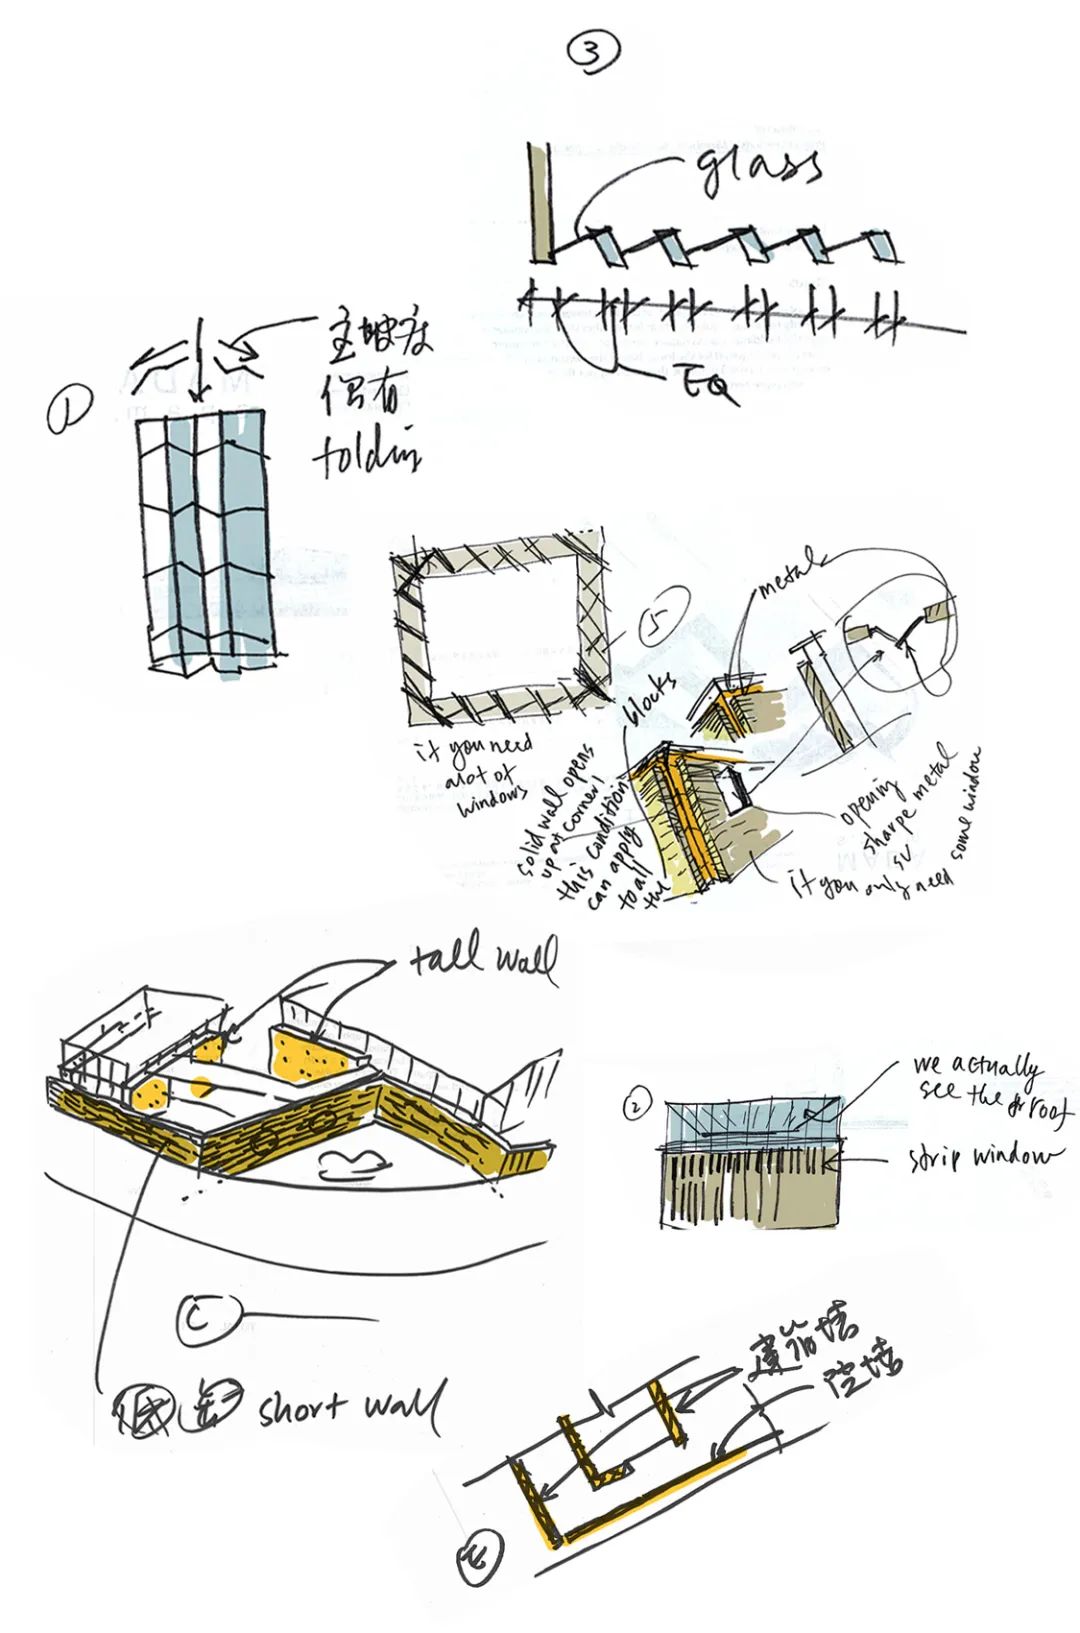 ③
glass
EQ
①
主坡度
偶有
folding
⑤
metal
blocks
if you need
alot of
windows
solid wall opens
up at corner!
this condition
can apply
to all
the
opening
sharpe metal
if you only need
some window
tall wall
②
we actually
see the roof
strip window
C
short wall